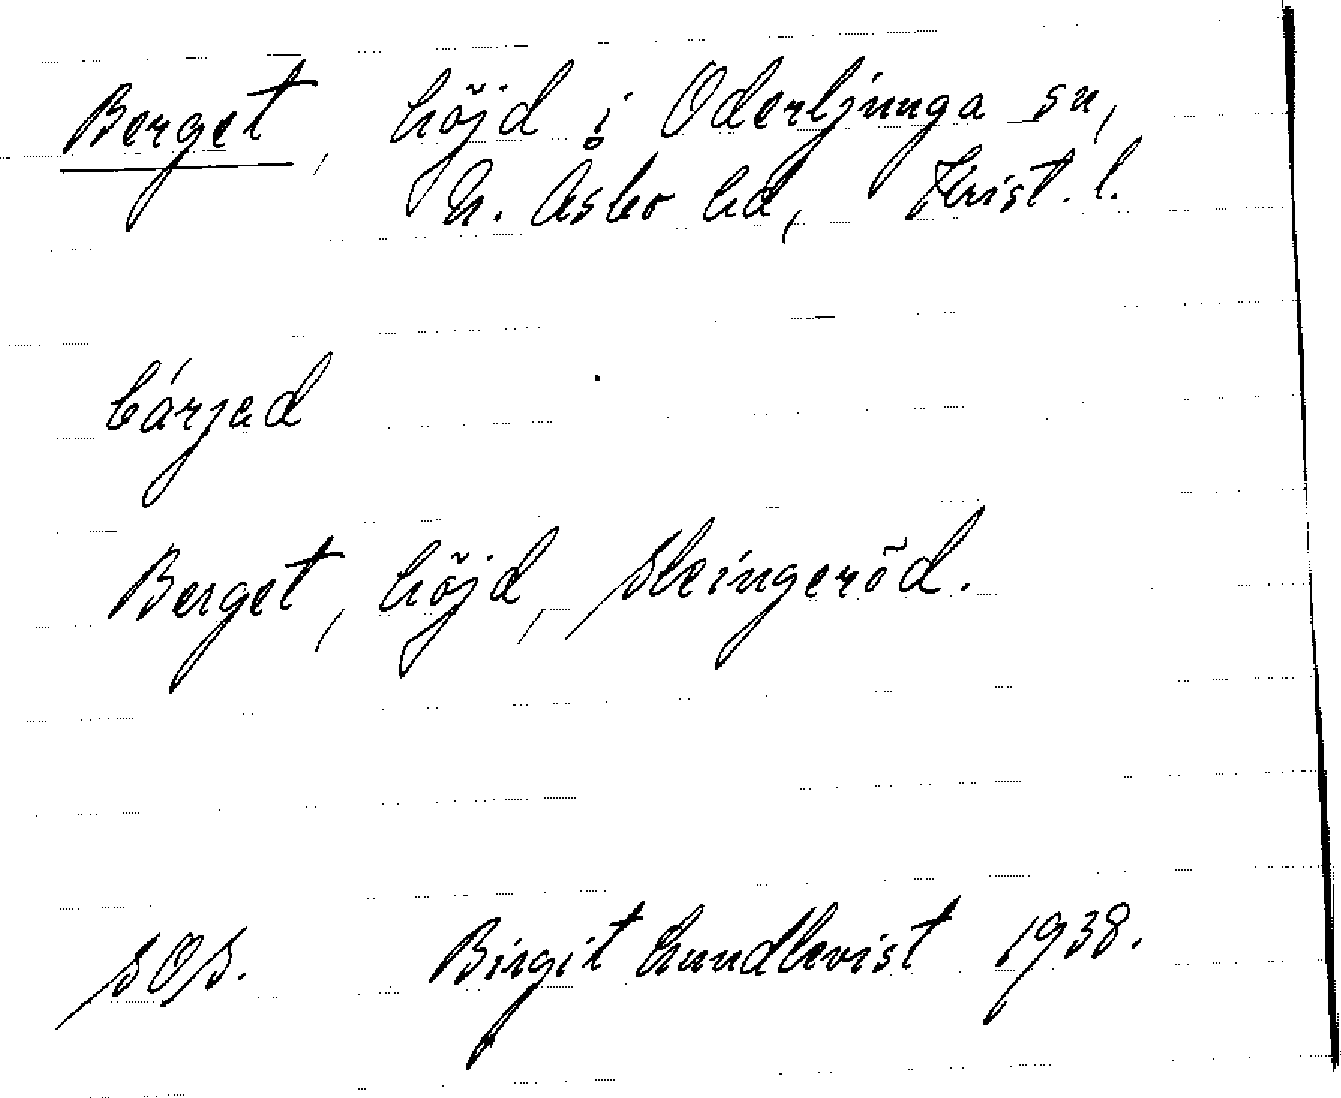 Berget, höjd i Oderljunga sn,
N. Åsbo hd, Krist. l.
bárjad
Berget, höjd, Skeingeröd.
SOS. Birgit Lundkvist 1938.